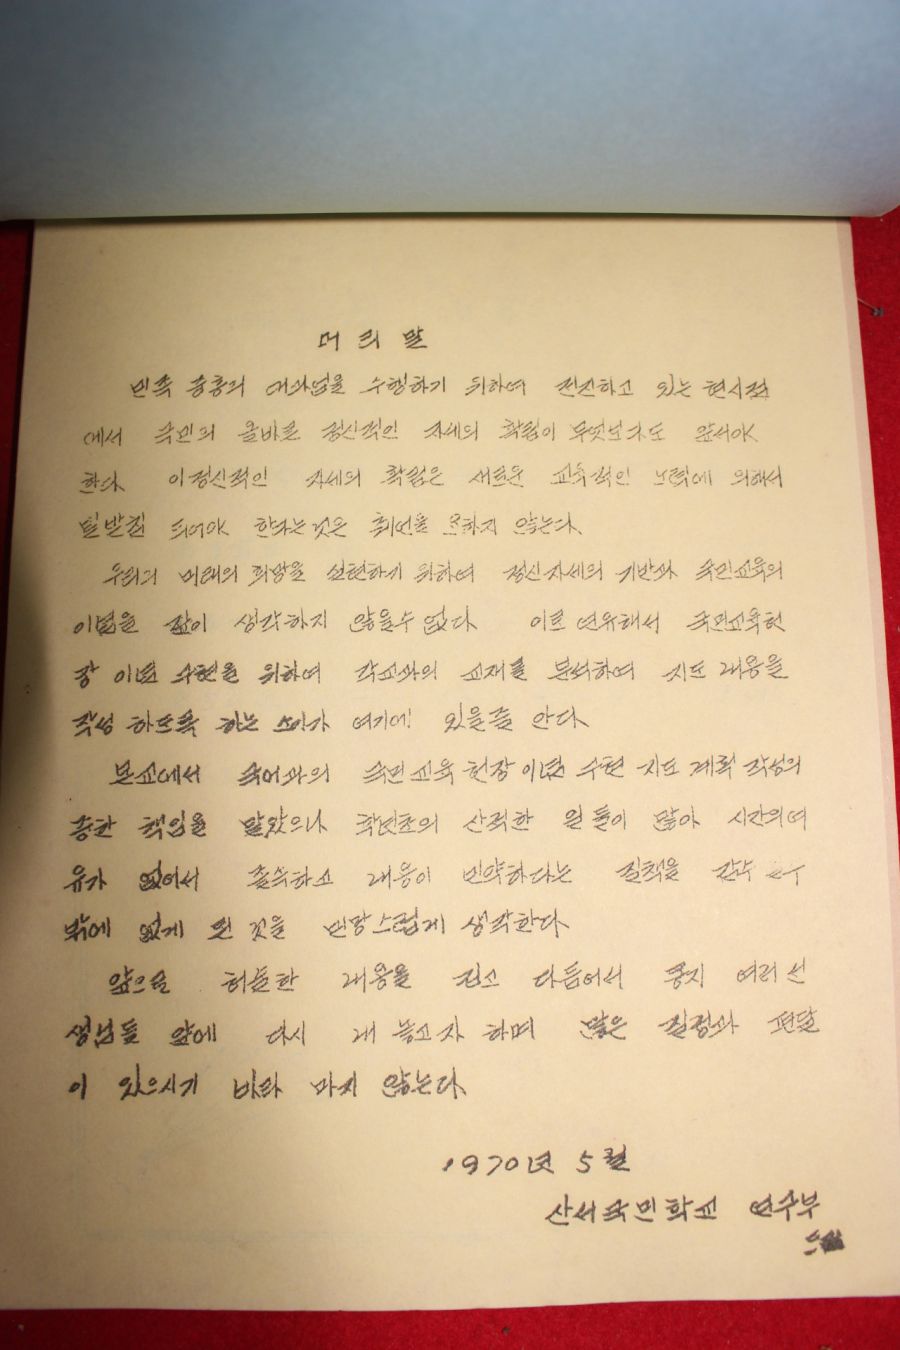 머리말
민족 중흥의 대과업을 수행하기 위하여 전진하고 있는 현시점
에서 국민의 올바른 정신적인 자세의 확립이 무엇보다도 앞서야
한다. 이정신적인 자세의 확립은 새로운 교육적인 노력에 의해서
뒷받침 되어야 한다는것은 췌언을 요하지 않는다.
우리의 미래의 희망을 실현하기 위하여 정신자세의 기반과 국민교육의
이념을 깊이 생각하지 않을수 없다 이로 연유해서 국민교육헌
장 이념 구현을 위하여 각교과의 교재를 분석하여 지도 내용을
작성 하도록 하는 소이가 여기에 있을줄 안다.
본교에서 국어과의 국민교육 헌장 이념 구현 지도 계획 작성의
중한 책임을 맡았으나 학년초의 산적한 일들이 많아 시간의여
유가 없어서 졸속하고 내용이 빈약하다는 질책을 감수
밖에 없게 된 것을 민망스럽게 생각한다.
앞으로 허술한 내용을 진소 다듬어서 동지 여러선
생님들 앞에 다시 내 놓고자 하며 많은 질정과 편달
이 있으시기 바라 마지 않는다.
1970년 5월
산서국민학교 연수부